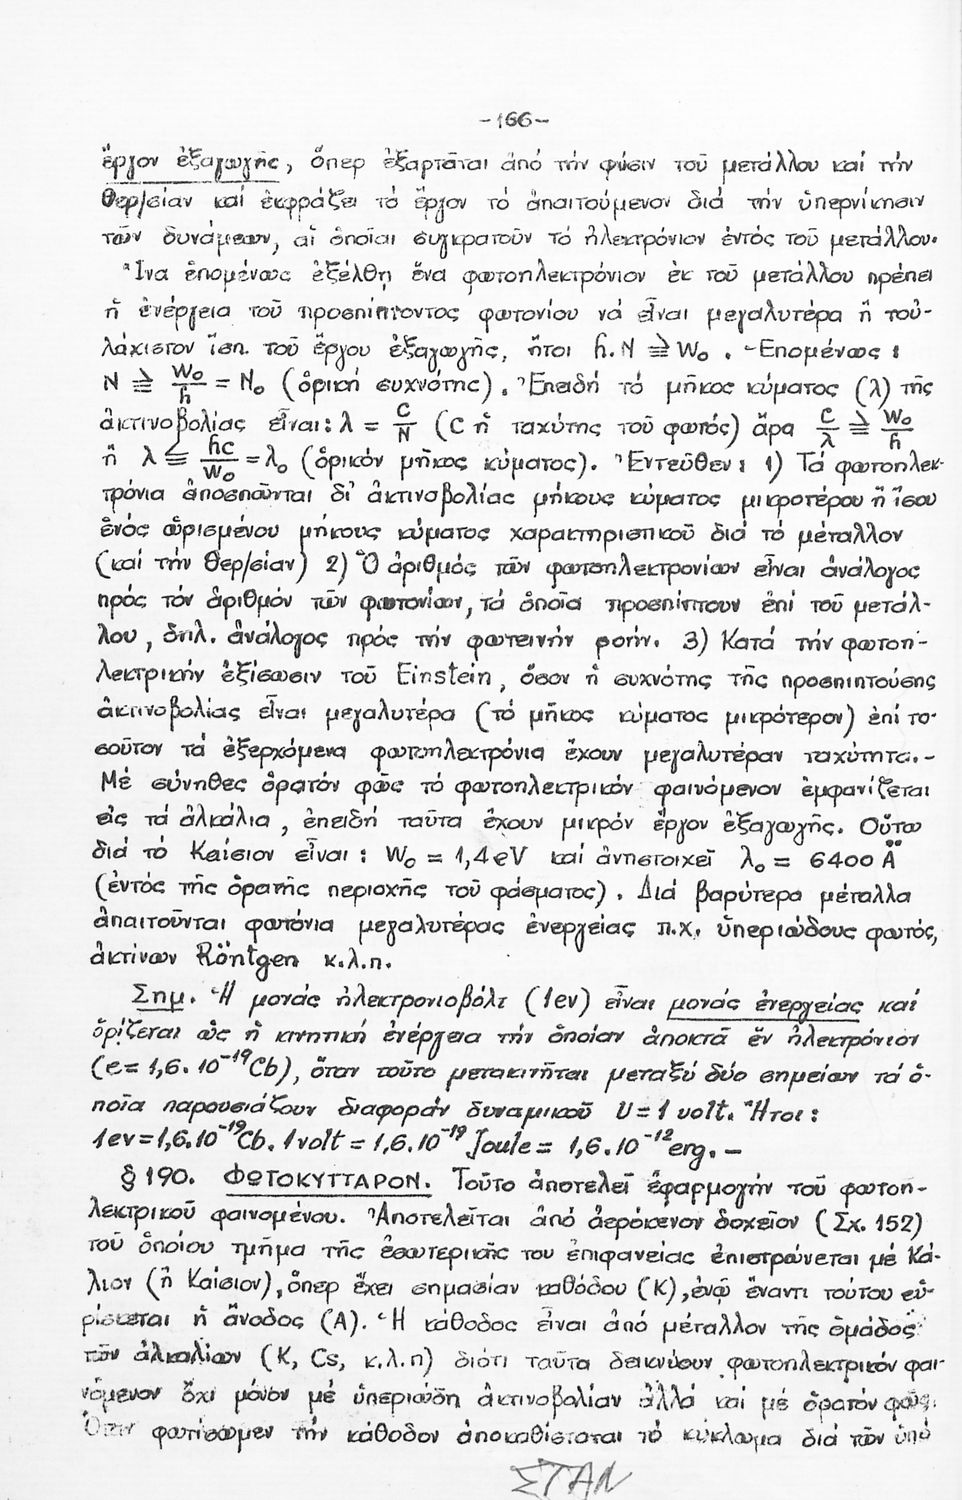 -166-
ἔργον ἐξαγωγῆς, ὅπερ ἐξαρτᾶται ἀπό τήν φύσιν τοῦ μετάλλου καί τήν
θερ/σίαν καί ἐκφράζει τό ἔργον τό ἀπαιτούμενον διά τήν ὑπερνίκησιν
τῶν δυνάμεων, αἱ ὁποῖαι συγκρατοῦν τό ἠλεκτρόνιον ἐντός τοῦ μετάλλου.
Ἵνα ἑπομένως ἐξέλθῃ ἕνα φωτοηλεκτρόνιον ἐκ τοῦ μετάλλου πρέπει
ἡ ἐνέργεια τοῦ προσπίπτοντος φωτονίου νά εἶναι μεγαλυτέρα ἤ τοὐ-
λάχιστον ἴση. τοῦ ἔργου ἐξαγωγῆς, ἤτοι h.N ≧ W₀ . Ἑπομένως :
N ≧ W₀/h = N₀ (ὁρική συχνότης). Ἐπειδή τό μῆκος κύματος (λ) τῆς
ἀκτινοβολίας εἶναι: λ = C/N (C ἡ ταχύτης τοῦ φωτός) ἄρα C/λ ≧ W₀/h
ἤ λ ≦ hc/W₀ = λ₀ (ὁρικόν μῆκος κύματος). Ἐντεῦθεν: 1) Τά φωτοηλεκ-
τρόνια ἀποσπῶνται δι᾽ ἀκτινοβολίας μήκους κύματος μικροτέρου ἤ ἴσου
ἑνός ὡρισμένου μήκους κύματος χαρακτηριστικοῦ διά τό μέταλλον
(καί τήν θερ/σίαν) 2) Ὁ ἀριθμός τῶν φωτοηλεκτρονίων εἶναι ἀνάλογος
πρός τόν ἀριθμόν τῶν φωτονίων, τά ὁποῖα προσπίπτουν ἐπί τοῦ μετάλ-
λου, δηλ. ἀνάλογος πρός τήν φωτεινήν ροήν. 3) Κατά τήν φωτοη-
λεκτρικήν ἐξίσωσιν τοῦ Einstein, ὅσον ἡ συχνότης τῆς προσπιπτούσης
ἀκτινοβολίας εἶναι μεγαλυτέρα (τό μῆκος κύματος μικρότερον) ἐπί το-
σοῦτον τά ἐξερχόμενα φωτοηλεκτρόνια ἔχουν μεγαλυτέραν ταχύτητα.-
Μέ σύνηθες ὁρατόν φῶς τό φωτοηλεκτρικόν φαινόμενον ἐμφανίζεται
εἰς τά ἀλκάλια, ἐπειδή ταῦτα ἔχουν μικρόν ἔργον ἐξαγωγῆς. Οὕτω
διά τό Καίσιον εἶναι : W₀ = 1,4eV καί ἀντιστοιχεῖ λ₀ = 6400 Å
(ἐντός τῆς ὁρατῆς περιοχῆς τοῦ φάσματος). Διά βαρύτερα μέταλλα
ἀπαιτοῦνται φωτόνια μεγαλυτέρας ἐνεργείας π.χ. ὑπεριώδους φωτός,
ἀκτίνων Röntgen κ.λ.π.
Σημ. Ἡ μονάς ἠλεκτρονιοβόλτ (1ev) εἶναι μονάς ἐνεργείας καί
ὁρίζεται ὡς ἡ κινητική ἐνέργεια τήν ὁποίαν ἀποκτᾶ ἕν ἠλεκτρόνιον
(e = 1,6.10⁻¹⁹Cb), ὅταν τοῦτο μετακινῆται μεταξύ δύο σημείων τά ὁ-
ποῖα παρουσιάζουν διαφοράν δυναμικοῦ U = 1 volt. Ἤτοι :
1ev = 1,6.10⁻¹⁹Cb. 1volt = 1,6.10⁻¹⁹ Joule = 1,6.10⁻¹² erg. -
§ 190. ΦΩΤΟΚΥΤΤΑΡΟΝ. Τοῦτο ἀποτελεῖ ἐφαρμογήν τοῦ φωτοη-
λεκτρικοῦ φαινομένου. Ἀποτελεῖται ἀπό ἀερόκενον δοχεῖον (Σχ. 152)
τοῦ ὁποίου τμῆμα τῆς ἐσωτερικῆς του ἐπιφανείας ἐπιστρώνεται μέ Κά-
λιον (ἤ Καίσιον), ὅπερ ἔχει σημασίαν καθόδου (Κ), ἐνῷ ἔναντι τούτου εὑ-
ρίσκεται ἡ ἄνοδος (Α). Ἡ κάθοδος εἶναι ἀπό μέταλλον τῆς ὁμάδος
τῶν ἀλκαλίων (K, Cs, κ.λ.π) διότι ταῦτα δεικνύουν φωτοηλεκτρικόν φαι-
νόμενον ὄχι μόνον μέ ὑπεριώδη ἀκτινοβολίαν ἀλλά καί μέ ὁρατόν φῶς.
Ὅταν φωτίσωμεν τήν κάθοδον ἀποκαθίσταται τό κύκλωμα διά τῶν ὑπό
ΣΤΑΝ